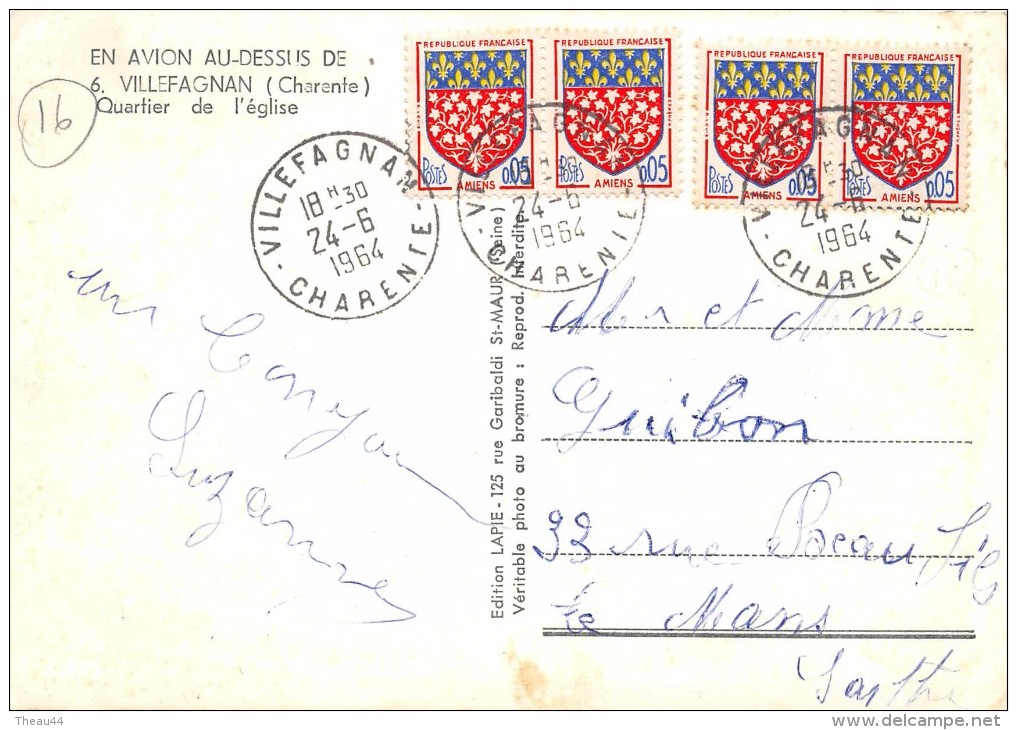 EN AVION AU-DESSUS DE
6. VILLEFAGNAN (Charente)
Quartier de l'église
16
REPUBLIQUE FRANCAISE
POSTES 0.05
AMIENS
REPUBLIQUE FRANCAISE
POSTES 0.05
AMIENS
REPUBLIQUE FRANCAISE
POSTES 0.05
AMIENS
REPUBLIQUE FRANCAISE
POSTES 0.05
AMIENS
VILLEFAGNAN
18 H 30
24-6
1964
- CHARENTE -
24-6
1964
CHARENTE
24-6
1964
CHARENTE
un
Suzanne
Edition LAPIE - 125 rue Garibaldi St-MAUR (Seine)
Véritable photo au bromure : Reprod. Interdite.
Mr et Mme
Guibon
33 rue
Le Mans
Sarthe
Theau44
www.delcampe.net